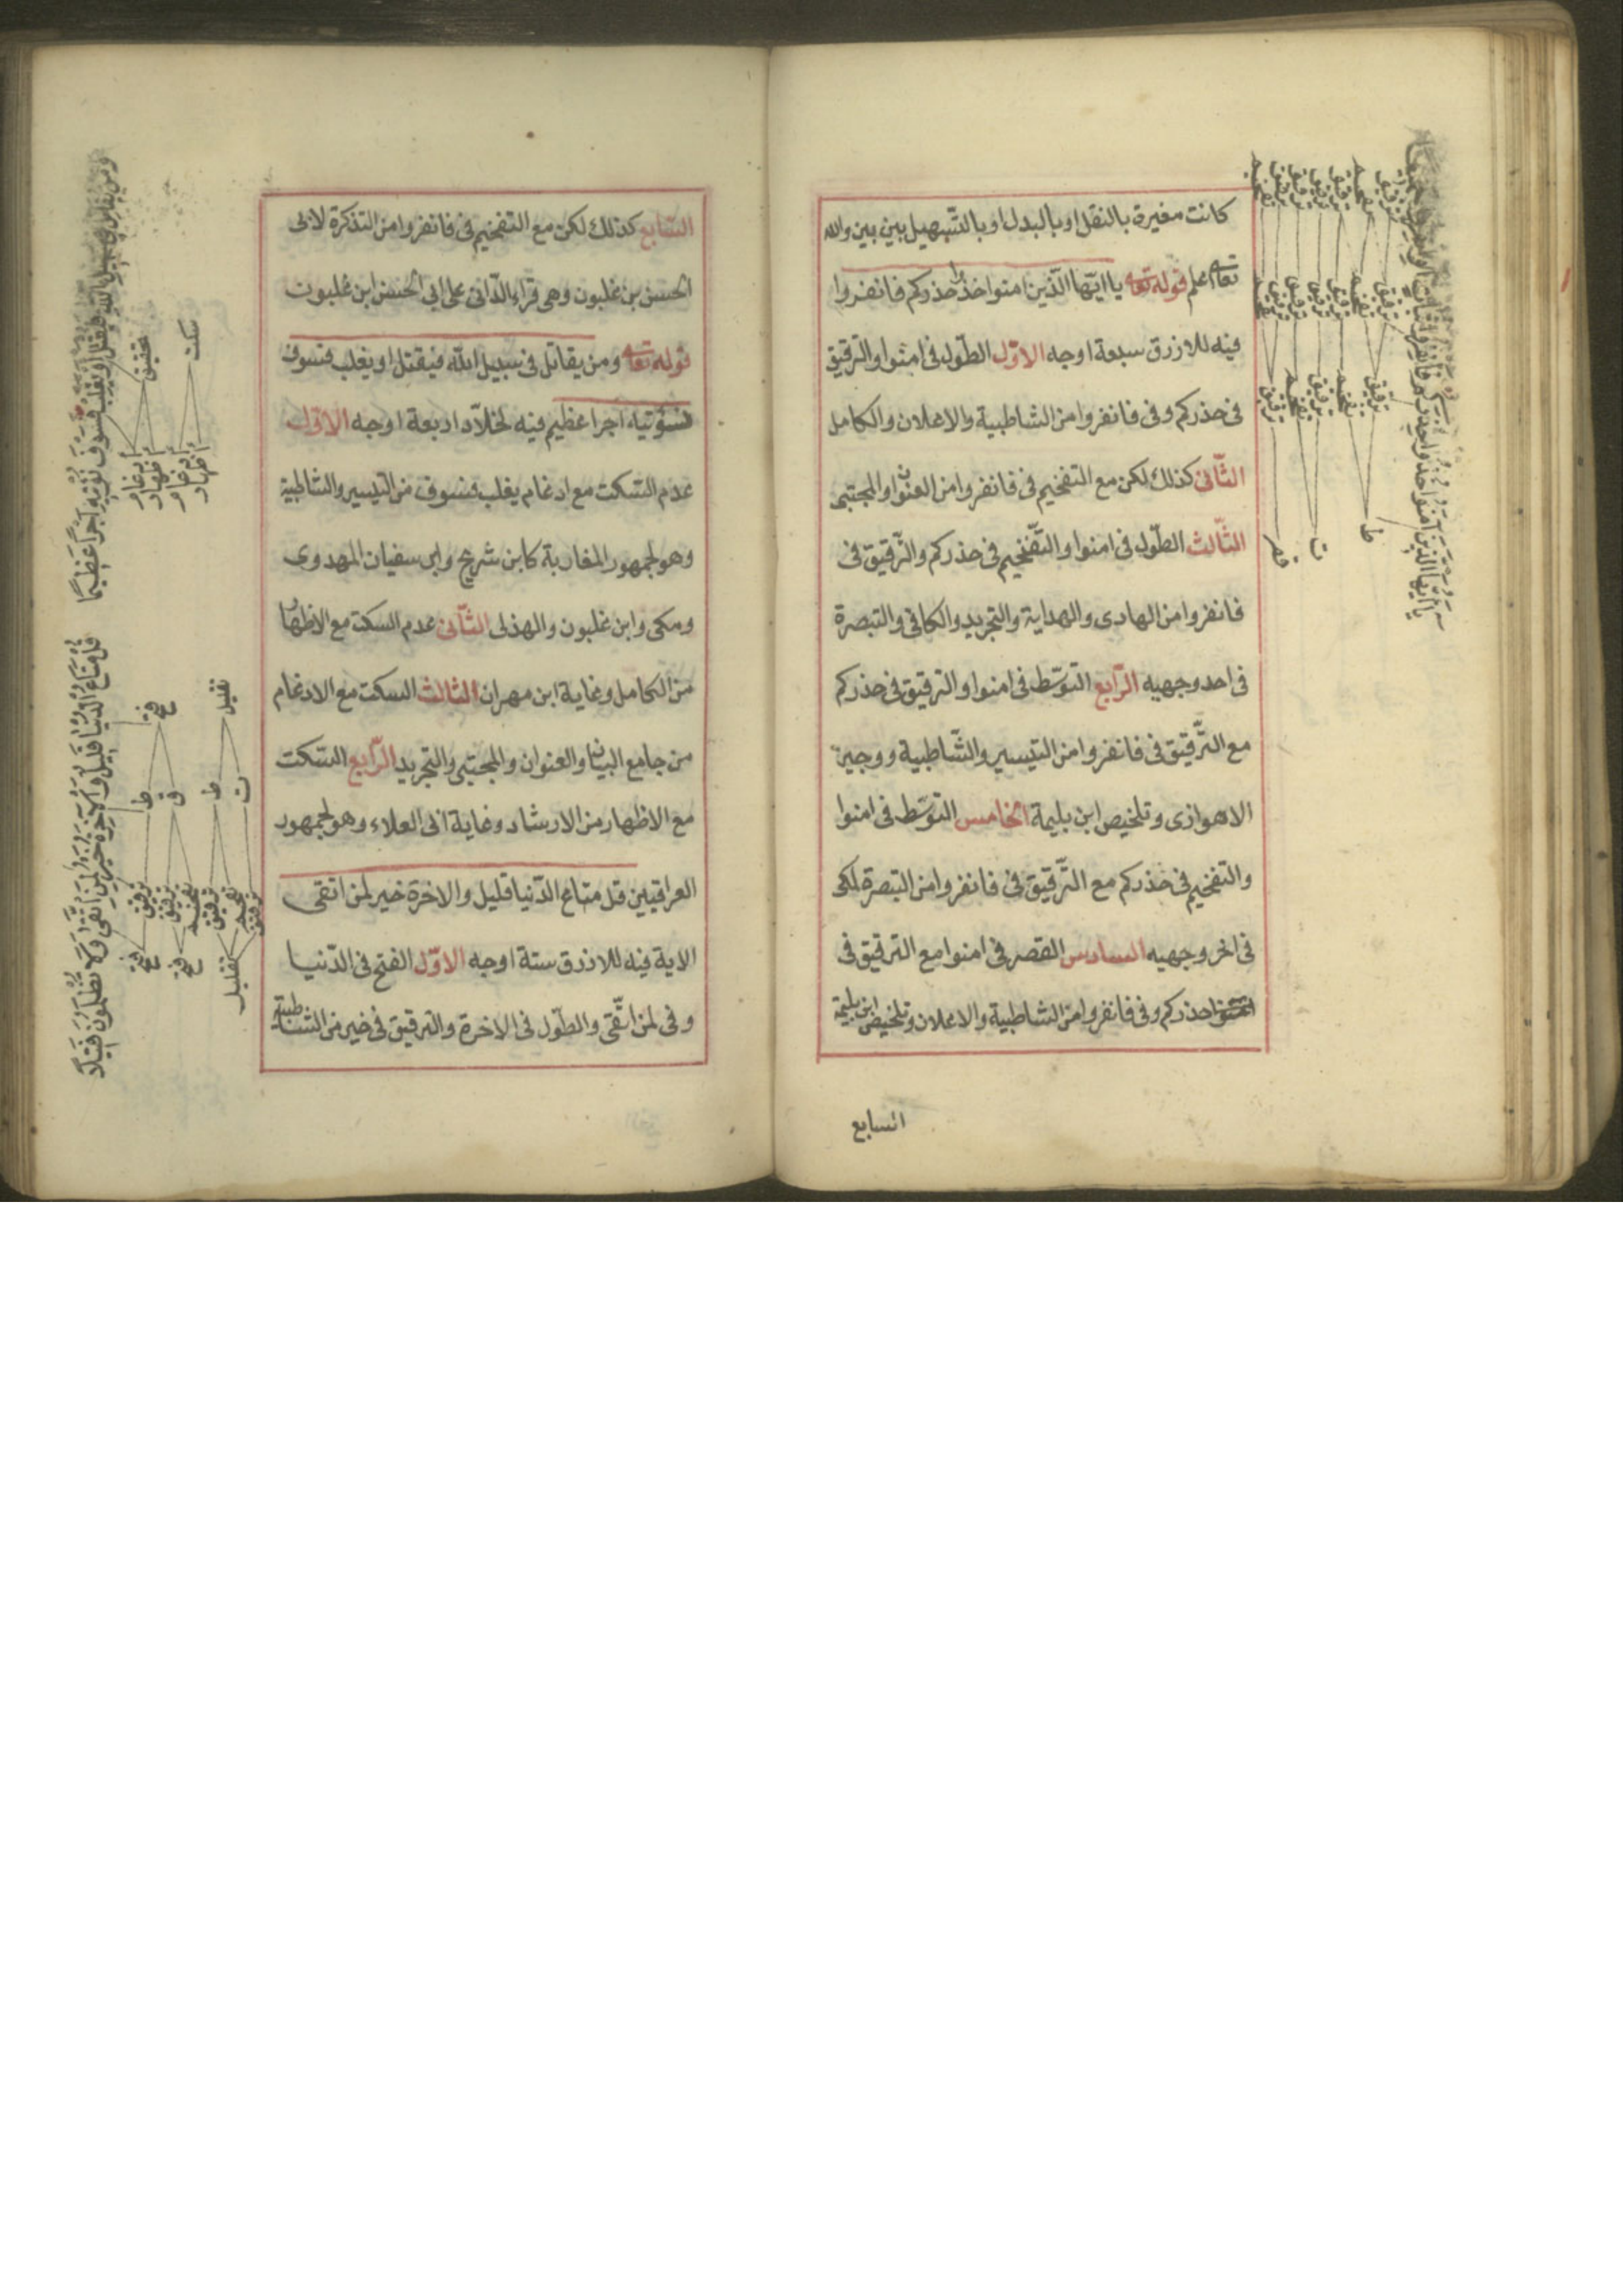 كانت مغيرة بالنقل او بالبدل او بالتسهيل بين بين والله
تعا اعلم قوله تعا يا ايّها الّذين امنوا خذوا حذركم فانفروا
فيه للازرق سبعة اوجه الاوّل الطّول فى امنوا والترقيق
فى حذركم وفى فانفروا من الشاطبية والاعلان والكامل
الثّانى كذلك لكن مع التفخيم فى فانفروا من العنوان والمجتبى
الثّالث الطّول فى امنوا والتّفخيم فى حذركم والتّرقيق فى
فانفروا من الهادى والهداية والتجريد والكافى والتبصرة
فى احد وجهيه الرّابع التوسّط فى امنوا والترقيق فى حذركم
مع التّرقيق فى فانفروا من التيسير والشّاطبية ووجيز
الاهوازى وتلخيص ابن بليمة الخامس التوسّط فى امنوا
والتفخيم فى حذركم مع التّرقيق فى فانفروا من التبصرة لمكى
فى اخر وجهيه السادس القصر فى امنوا مع الترقيق فى
حذركم وفى فانفروا من الشاطبية والاعلان وتلخيص ابن بليمة
السابع
يا ايها الذين آمنوا خذوا حذركم فانفروا ثبات
ط
ت
قصر
ترقيق
تفخيم
السّابع كذلك لكن مع التفخيم فى فانفروا من التذكرة لابى
الحسن بن غلبون وهى قراءة الدّانى على ابى الحسن ابن غلبون
قوله تعا ومن يقاتل فى سبيل اللّه فيقتل او يغلب فسوف
نؤتيه اجرا عظيم فيه لخلّاد اربعة اوجه الاوّل
عدم السّكت مع ادغام يغلب فسوف من التيسير والشاطبية
وهو لجمهور المغاربة كابن شريح وابن سفيان المهدوى
ومكى وابن غلبون والهذلى الثّانى عدم السكت مع الاظهار
من الكامل وغاية ابن مهران الثالث السكت مع الادغام
من جامع البيان والعنوان والمجتبى والتجريد الرّابع السّكت
مع الاظهار من الارشاد وغاية ابى العلاء وهو لجمهور
العراقيين قل متاع الدّنيا قليل والاخرة خير لمن اتقى
الاية فيه للازرق ستة اوجه الاوّل الفتح فى الدّنيا
وفى لمن اتّقى والطّول فى الاخرة والترقيق فى خير من الشاطبية
فسوف نؤتيه اجرا عظيما
تحقيق
سكت
ادغام
اظهار
ادغام
اظهار
قل متاع الدنيا قليل والآخرة خير لمن اتقى ولا تظلمون فتيلا
فتح
تقليل
ط
ق
ط
ت
ترقيق
تفخيم
فتح
فتح
تقليل